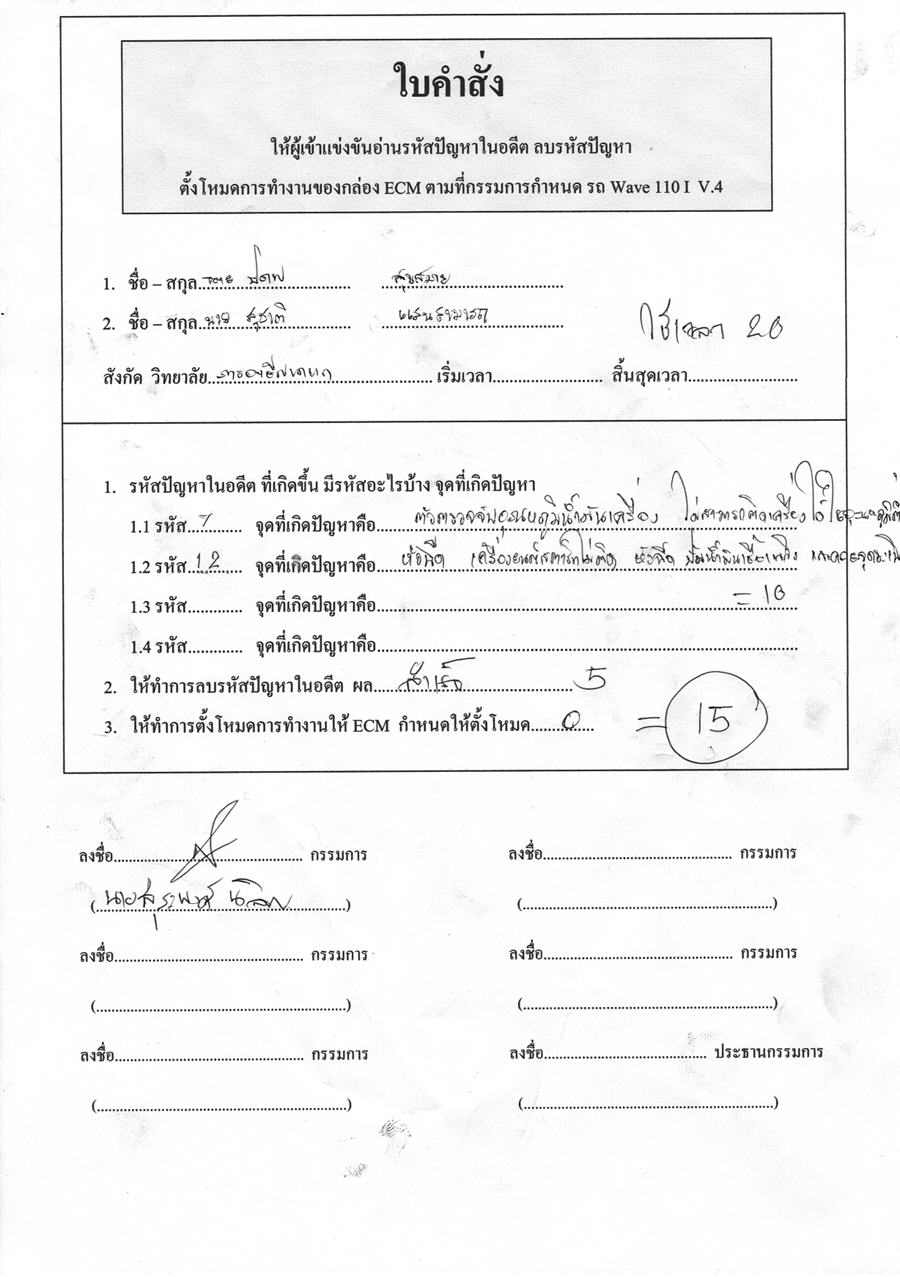 ใบคำสั่ง
ให้ผู้เข้าแข่งขันอ่านรหัสปัญหาในอดีต ลบรหัสปัญหา
ตั้งโหมดการทำงานของกล่อง ECM ตามที่กรรมการกำหนด รถ Wave 110 I V.4
1. ชื่อ – สกุล
2. ชื่อ – สกุล นาย สุชาติ แสนสามารถ
ใช้เวลา 20
สังกัด วิทยาลัย เริ่มเวลา สิ้นสุดเวลา
1. รหัสปัญหาในอดีต ที่เกิดขึ้น มีรหัสอะไรบ้าง จุดที่เกิดปัญหา
1.1 รหัส 7 จุดที่เกิดปัญหาคือ ตัวตรวจจับอุณหภูมิน้ำมันเครื่อง ไม่สามารถติดเครื่องได้
1.2 รหัส 12 จุดที่เกิดปัญหาคือ หัวฉีด เครื่องยนต์สตาร์ทไม่ติด หัวฉีด ปั๊มน้ำมันเชื้อเพลิง
1.3 รหัส จุดที่เกิดปัญหาคือ = 10
1.4 รหัส จุดที่เกิดปัญหาคือ
2. ให้ทำการลบรหัสปัญหาในอดีต ผล สำเร็จ 5
3. ให้ทำการตั้งโหมดการทำงานให้ ECM กำหนดให้ตั้งโหมด 0 = 15
ลงชื่อ กรรมการ ลงชื่อ กรรมการ
(นาย) ( )
ลงชื่อ กรรมการ ลงชื่อ กรรมการ
( ) ( )
ลงชื่อ กรรมการ ลงชื่อ ประธานกรรมการ
( ) ( )